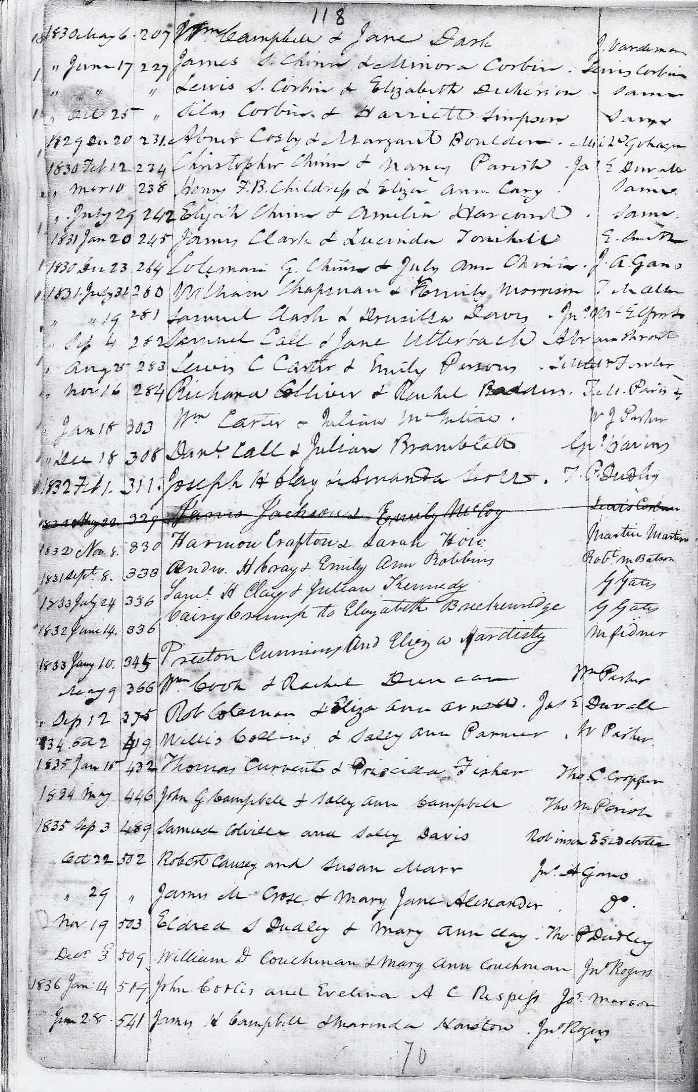 118
1830 May 6 207 Wm Campbell & Jane Dark J. Vardeman
" June 17 227 James S. Chinn & Minora Corbin Lewis Corbin
" " " Lewis S. Corbin & Elizabeth Dickerson Same
" Oct 25 " Silas Corbin & Harriett Simpson Same
1829 Dec 20 231 Abner Cosby & Margaret Bouldon
1830 Feb 12 234 Christopher Chinn & Nancy Parish Jas E Duvall
" Mar 10 238 Henry F. B. Childress & Eliza Ann Cary Same
" July 29 242 Elijah Chinn & Amelia Harcourt Same
1831 Jan 20 245 James Clark & Lucinda Tomihill E. Smith
1830 Dec 23 264 Coleman G. Chinn & July Ann Chinn J. A Gano
1831 July 21 280 William Chapman & Emily Morrison
" " 19 281 Samuel Clash & Drusilla Davis
" Sep 4 282 Samuel Call & Jane Utterback
" Aug 25 283 Lewis C Carter & Emily Persons
" Nov 16 284 Richard Colliver & Rachel
" Jan 18 303 Wm Carter & Julian McIntire W J Parker
" Dec 18 308 Danl Call & Julian Bramblett
1832 Feb 1 311 Joseph H Clay & Amanda Scott T P Dudley
329 James Jackson & Emily McCoy
1832 Nov. 8. 330 Harmon Crafton & Sarah Martin
1831 Sept. 8. 333 Andw. H Cray & Emily Ann Robbins Robt.
1833 July 24 336 Saml H Clay & Julian Kennedy G Gates
1832 June 14. 336 Cairy Crump to Elizabeth Breckenridge G Gates
1833 Jany 10. 345 Preston Cummins And Eliza Hardisty
May 9 366 Wm Cook & Rachel Duncan Wm Parker
" Sep 12 375 Rob Coleman & Eliza Ann Arnett. Jas E. Duvall
1834 Oct 2 419 Willis Collins & Sally Ann Parmer W Parker
1835 Jan 15 432 Thomas Current & Priscilla Fisher Tho C Cropper
1834 May 446 John G Campbell & Sally Ann Campbell Tho M Parish
1835 Sep 3 489 Samuel Colville and Sally Davis Robinson E
Oct 22 502 Robert Causey and Susan Marr Jno A Gano
" 29 " James M Crose & Mary Jane Alexander Do.
Nov 19 503 Eldred S Dudley & Mary Ann Clay Tho P Dudley
Decr 3 509 William D Couchman & Mary Ann Couchman Jno Rogers
1836 Jan 14 519 John Corlis and Evelina A C Respess
Jan 28 541 James H Campbell & Marinda Houston Jno Rogers
70